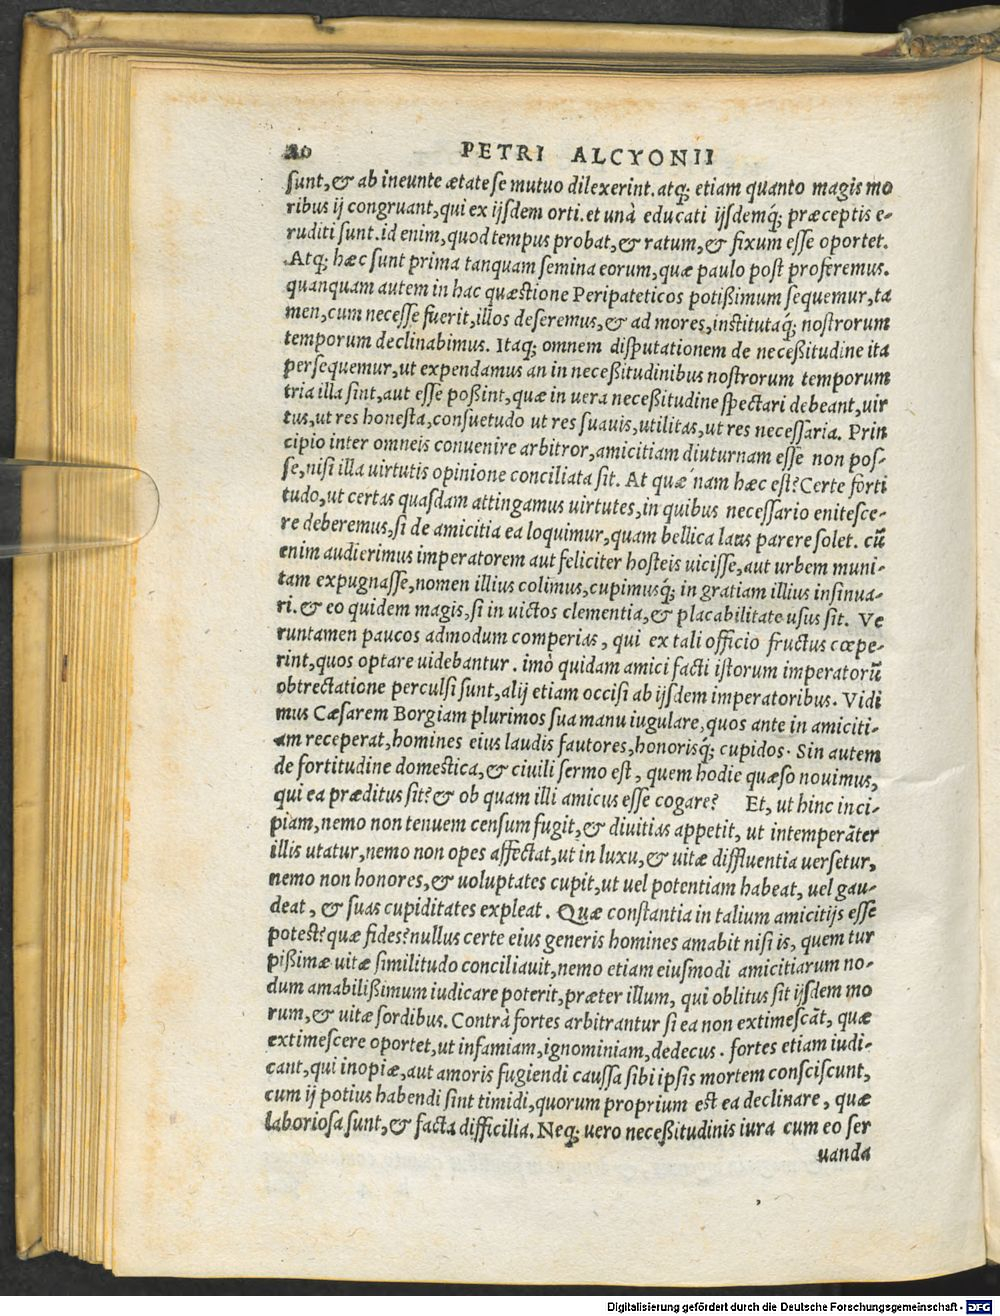 20 PETRI ALCYONII
sunt,& ab ineunte ætate se mutuo dilexerint. atq; etiam quanto magis mo
ribus ij congruant,qui ex ijsdem orti.et unà educati ijsdemq́; præceptis e-
ruditi sunt.id enim,quod tempus probat,& ratum,& fixum esse oportet.
Atq; hæc sunt prima tanquam semina eorum,quæ paulo post proferemus.
quanquam autem in hac quæstione Peripateticos potißimum sequemur,ta
men,cum necesse fuerit,illos deseremus,& ad mores,institutaq́; nostrorum
temporum declinabimus. Itaq; omnem disputationem de neceßitudine ita
persequemur,ut expendamus an in neceßitudinibus nostrorum temporum
tria illa sint,aut esse poßint,quæ in uera neceßitudine spectari debeant,uir
tus,ut res honesta,consuetudo ut res suauis,utilitas,ut res necessaria. Prin
cipio inter omneis conuenire arbitror,amicitiam diuturnam esse non pos-
se,nisi illa uirtutis opinione conciliata sit. At quæ nam hæc est? Certe forti
tudo,ut certas quasdam attingamus uirtutes,in quibus necessario enitesce-
re deberemus,si de amicitia ea loquimur,quam bellica laus parere solet. cũ
enim audierimus imperatorem aut feliciter hosteis uicisse,aut urbem muni-
tam expugnasse,nomen illius colimus,cupimusq́; in gratiam illius insinua-
ri.& eo quidem magis,si in uictos clementia,& placabilitate usus sit. Ve
runtamen paucos admodum comperias, qui ex tali officio fructus cœpe-
rint,quos optare uidebantur. imò quidam amici facti istorum imperatorũ
obtrectatione perculsi sunt,alij etiam occisi ab ijsdem imperatoribus. Vidi
mus Cæsarem Borgiam plurimos sua manu iugulare,quos ante in amiciti-
am receperat,homines eius laudis fautores,honorisq́; cupidos. Sin autem
de fortitudine domestica,& ciuili sermo est, quem hodie quæso nouimus,
qui ea præditus sit? & ob quam illi amicus esse cogare? Et, ut hinc inci-
piam,nemo non tenuem censum fugit,& diuitias appetit, ut intemperãter
illis utatur,nemo non opes affectat,ut in luxu,& uitæ diffluentia uersetur,
nemo non honores,& uoluptates cupit,ut uel potentiam habeat, uel gau-
deat, & suas cupiditates expleat. Quæ constantia in talium amicitijs esse
potest? quæ fides? nullus certe eius generis homines amabit nisi is, quem tur
pißimæ uitæ similitudo conciliauit,nemo etiam eiusmodi amicitiarum no-
dum amabilißimum iudicare poterit,præter illum, qui oblitus sit ijsdem mo
rum,& uitæ sordibus. Contrà fortes arbitrantur si ea non extimescãt, quæ
extimescere oportet,ut infamiam,ignominiam,dedecus. fortes etiam iudi-
cant,qui inopiæ,aut amoris fugiendi caussa sibi ipsis mortem consciscunt,
cum ij potius habendi sint timidi,quorum proprium est ea declinare, quæ
laboriosa sunt,& facta difficilia. Neq; uero neceßitudinis iura cum eo ser
uanda
Digitalisierung gefördert durch die Deutsche Forschungsgemeinschaft - DFG